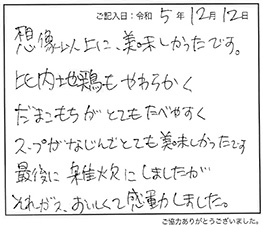 ご記入日：令和 5 年 12 月 12 日
想像以上に、美味しかったです。
比内地鶏もやわらかく
だまこもちがとてもたべやすく
スープがなじんでとても美味しかったです
最後に雑炊にしましたが
それがス、おいしくて感動しました。
ご協力ありがとうございました。